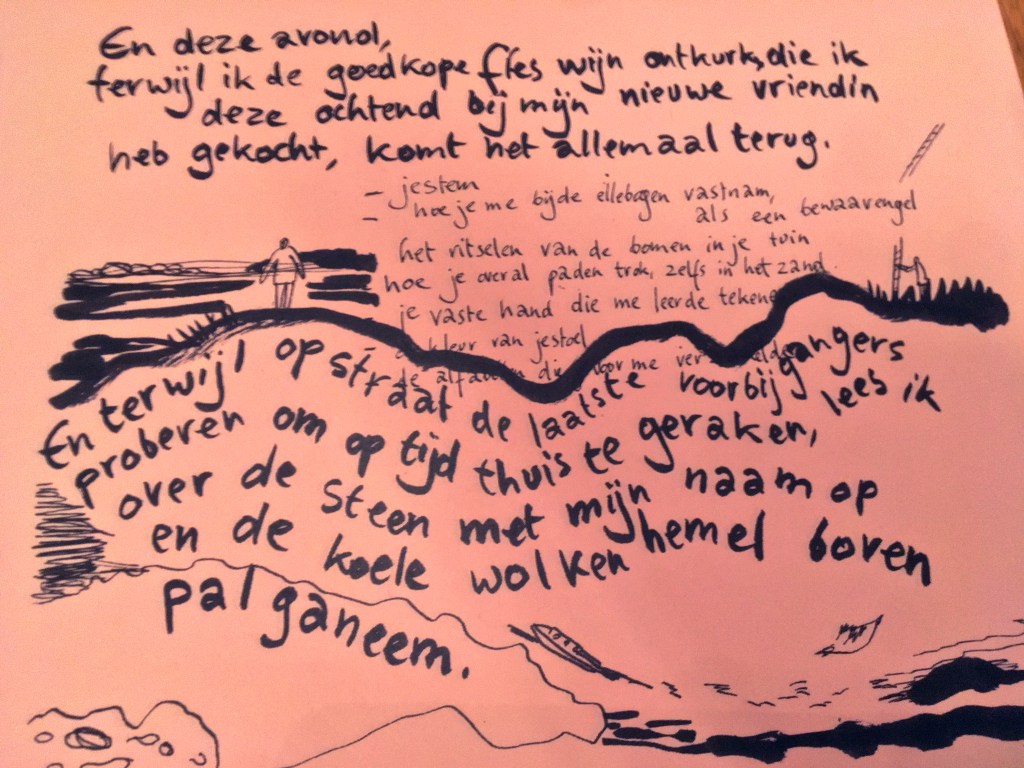 En deze avond,
terwijl ik de goedkope fles wijn ontkurk, die ik
deze ochtend bij mijn nieuwe vriendin
heb gekocht, komt het allemaal terug.
- jestem
- hoe je me bijde ellebogen vastnam,
als een bewaarengel
het ritselen van de bomen in je tuin
hoe je overal paden trok, zelfs in het zand
je vaste hand die me leerde tekene
kleur van jestoel
de die voor me
En terwijl op straat de laatste voorbijgangers
proberen om op tijd thuis te geraken, lees ik
over de steen met mijn naam op
en de koele wolken hemel boven
palganeem.